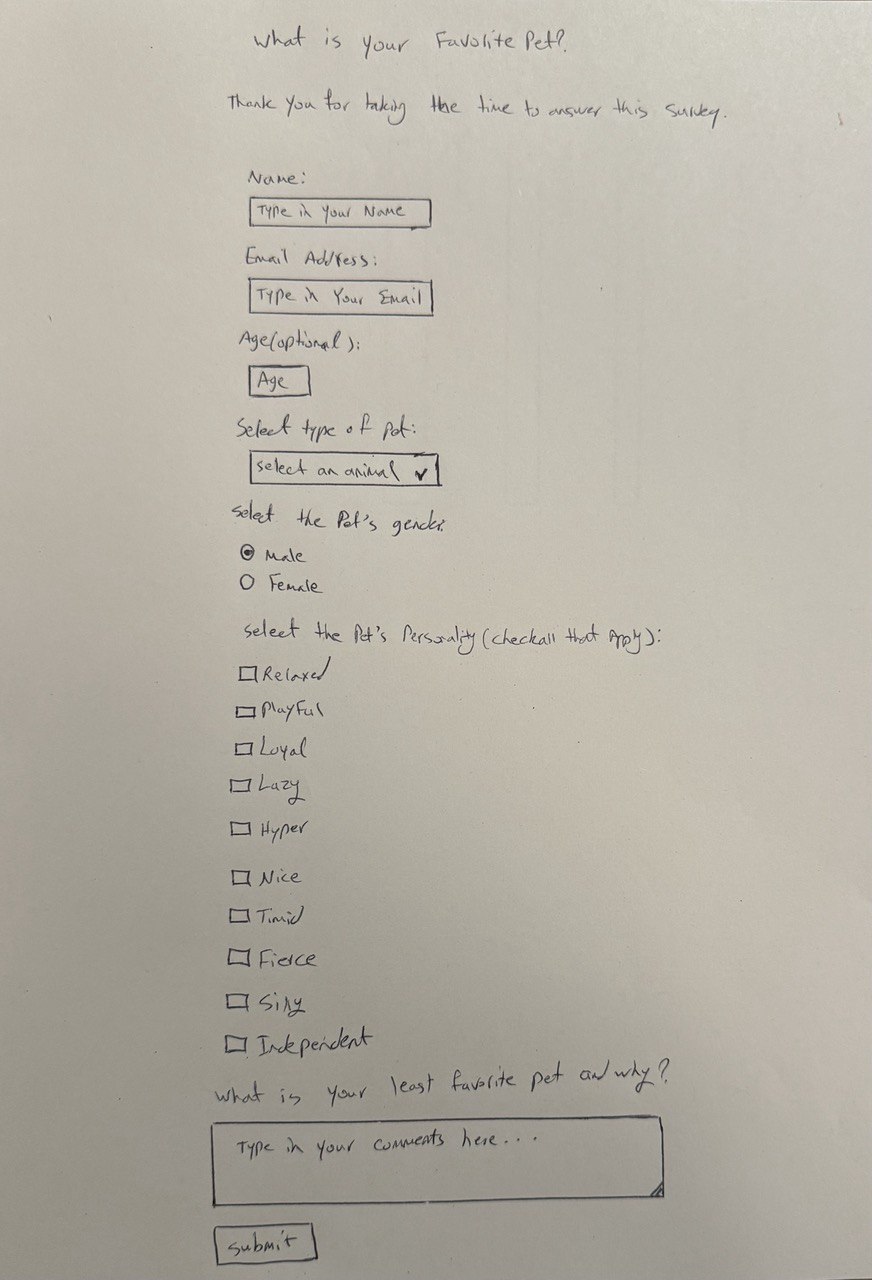 What is your Favorite Pet?
Thank you for taking the time to answer this survey.
Name:
Type in your Name
Email Address:
Type in Your Email
Age(optional):
Age
Select type of pet:
select an animal
select the Pet's gender:
Male
Female
select the Pet's Personality (check all that Apply):
Relaxed
Playful
Loyal
Lazy
Hyper
Nice
Timid
Fierce
Silly
Independent
What is your least favorite pet and why?
Type in your comments here...
submit